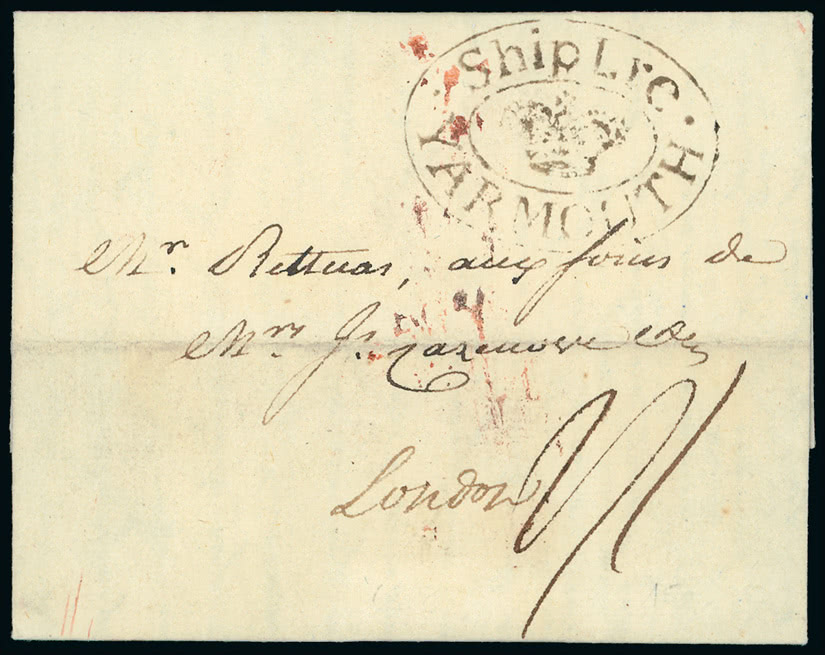 Ship Lre
YARMOUTH
Mr. Rettuas, aux soins de
Mrs J. Cazenove & Co
London